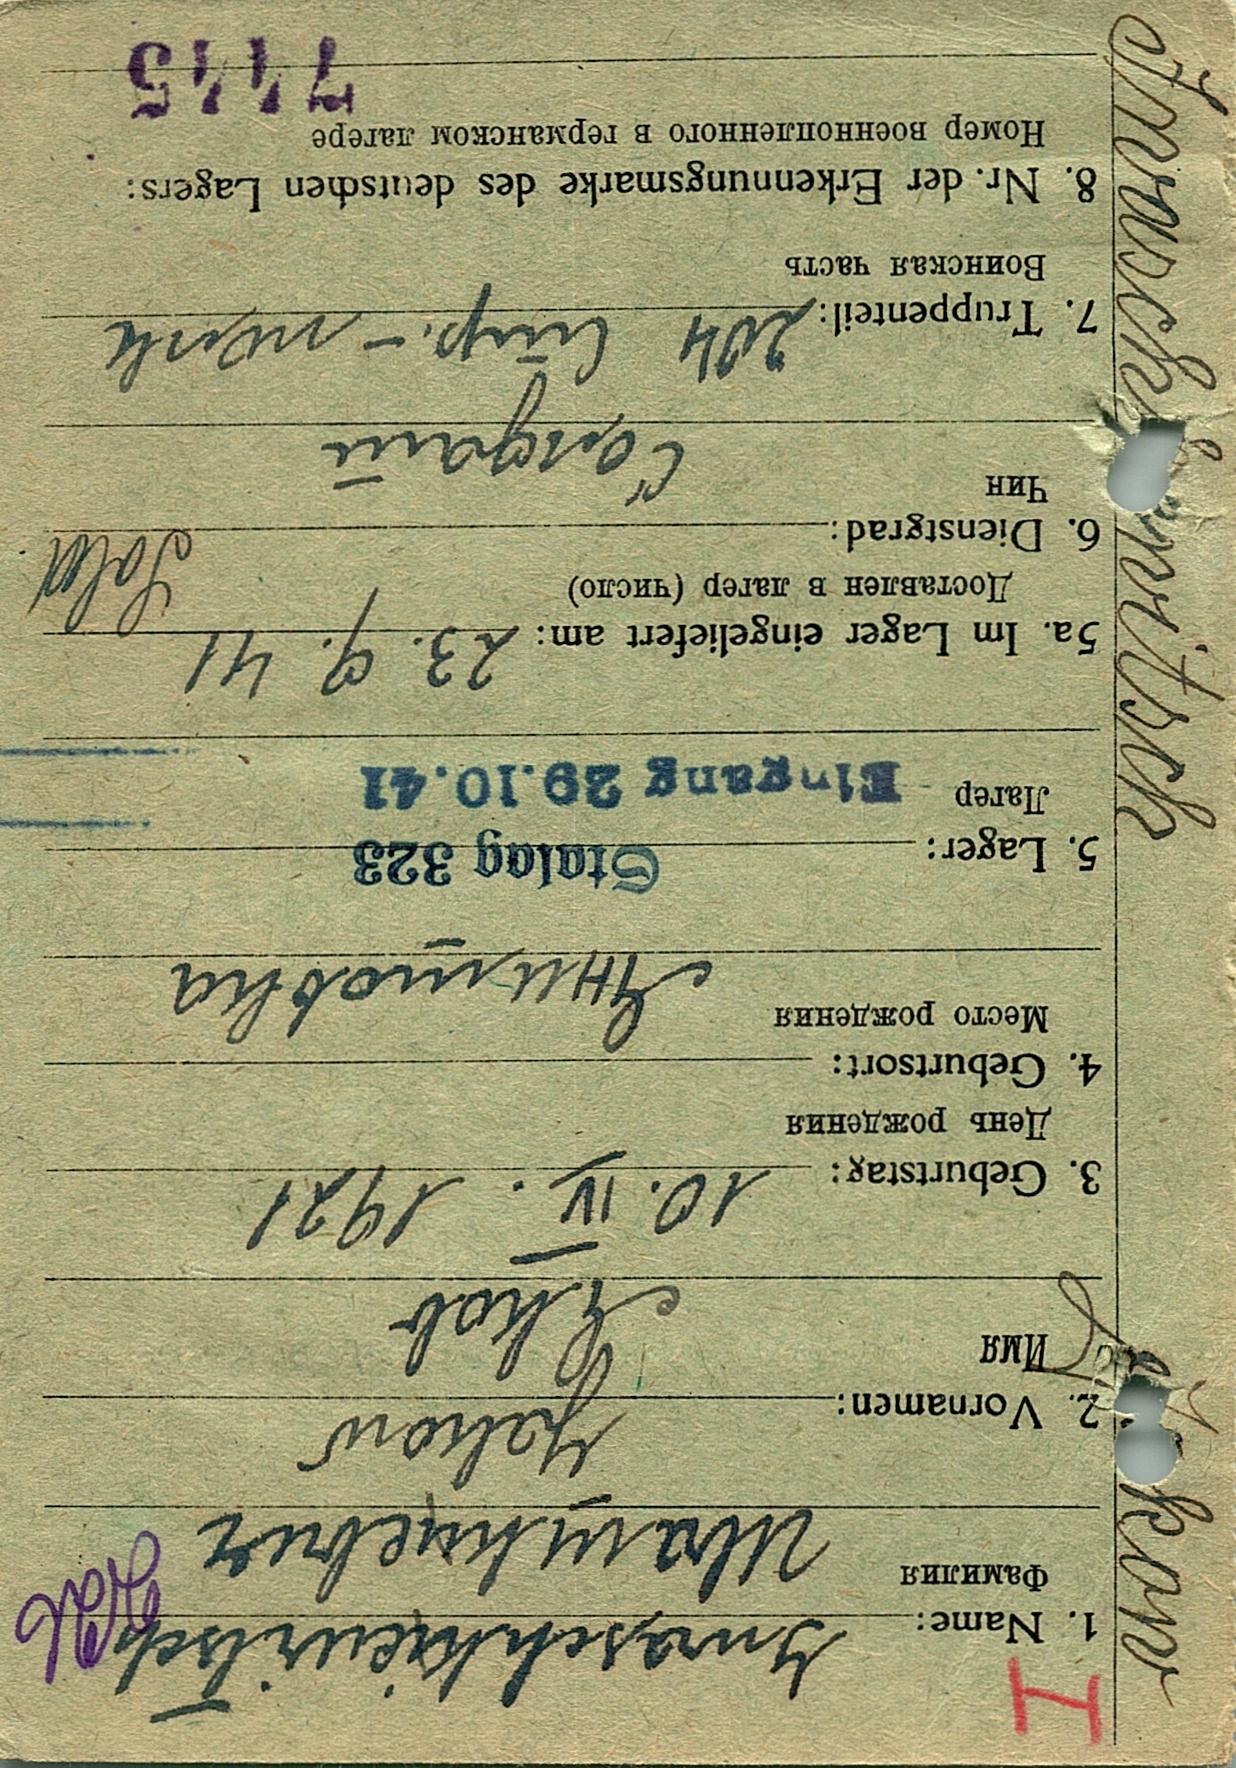 I
1. Name: Iwaschkewitsch
Фамилия Ивашкевич
2. Vornamen: Jakow
Имя Яков
3. Geburtstag: 10. IV. 1921
День рождения
4. Geburtsort:
Место рождения
5. Lager: Stalag 323
Лагер Eingang 29.10.41
5a. Im Lager eingeliefert am: 23. 9. 41
Доставлен в лагер (число)
6. Dienstgrad: Sold
Чин Солдат
7. Truppenteil: 204
Воинская часть
8. Nr. der Erkennungsmarke des deutschen Lagers:
Номер военнопленного в германском лагере
7445
Jakow